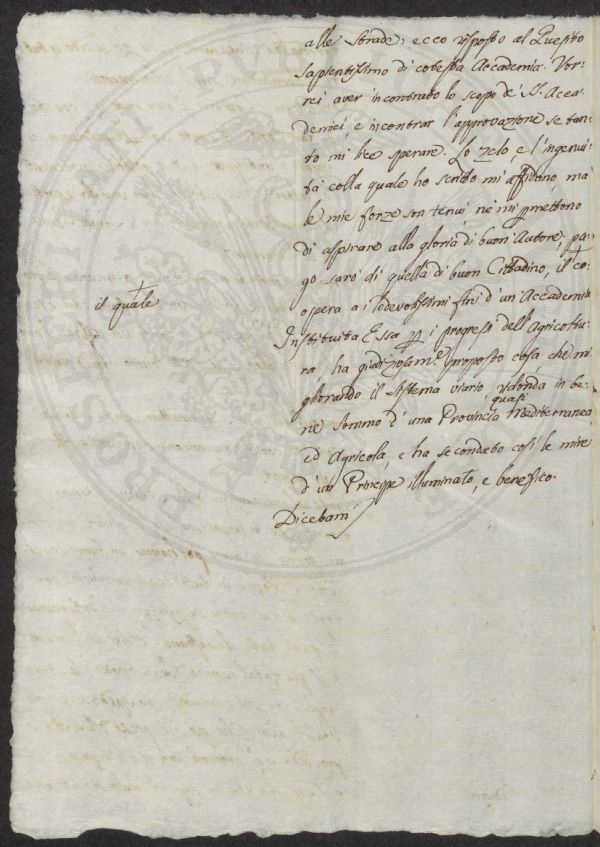 alle strade: ecco risposto al Quesito
sapientissimo di cotesta Accademia. Vor-
rei aver incontrato lo scopo de' SS. Acca-
demici e incontrar l'approvazione se tan-
to mi lice sperare. Lo zelo, e l'ingenui-
tà colla quale ho scritto mi affidano, ma
le mie forze son tenui nè mi permettono
di aspirare alla gloria di buon Autore; pa-
go sarò di quella di buon Cittadino, il
coopera ai lodevolissimi fini d'un'Accademia
Instituita Essa p i progressi dell'Agricoltu-
ra, ha giudiziosam.e proposto cosa che mi-
gliorando il sistema viario ridonda in be-
ne sommo d'una Provincia quasi Mediterranea
ed Agricola, e ha secondato così le mire
d'un Principe illuminato, e benefico.
Dicebam
il quale